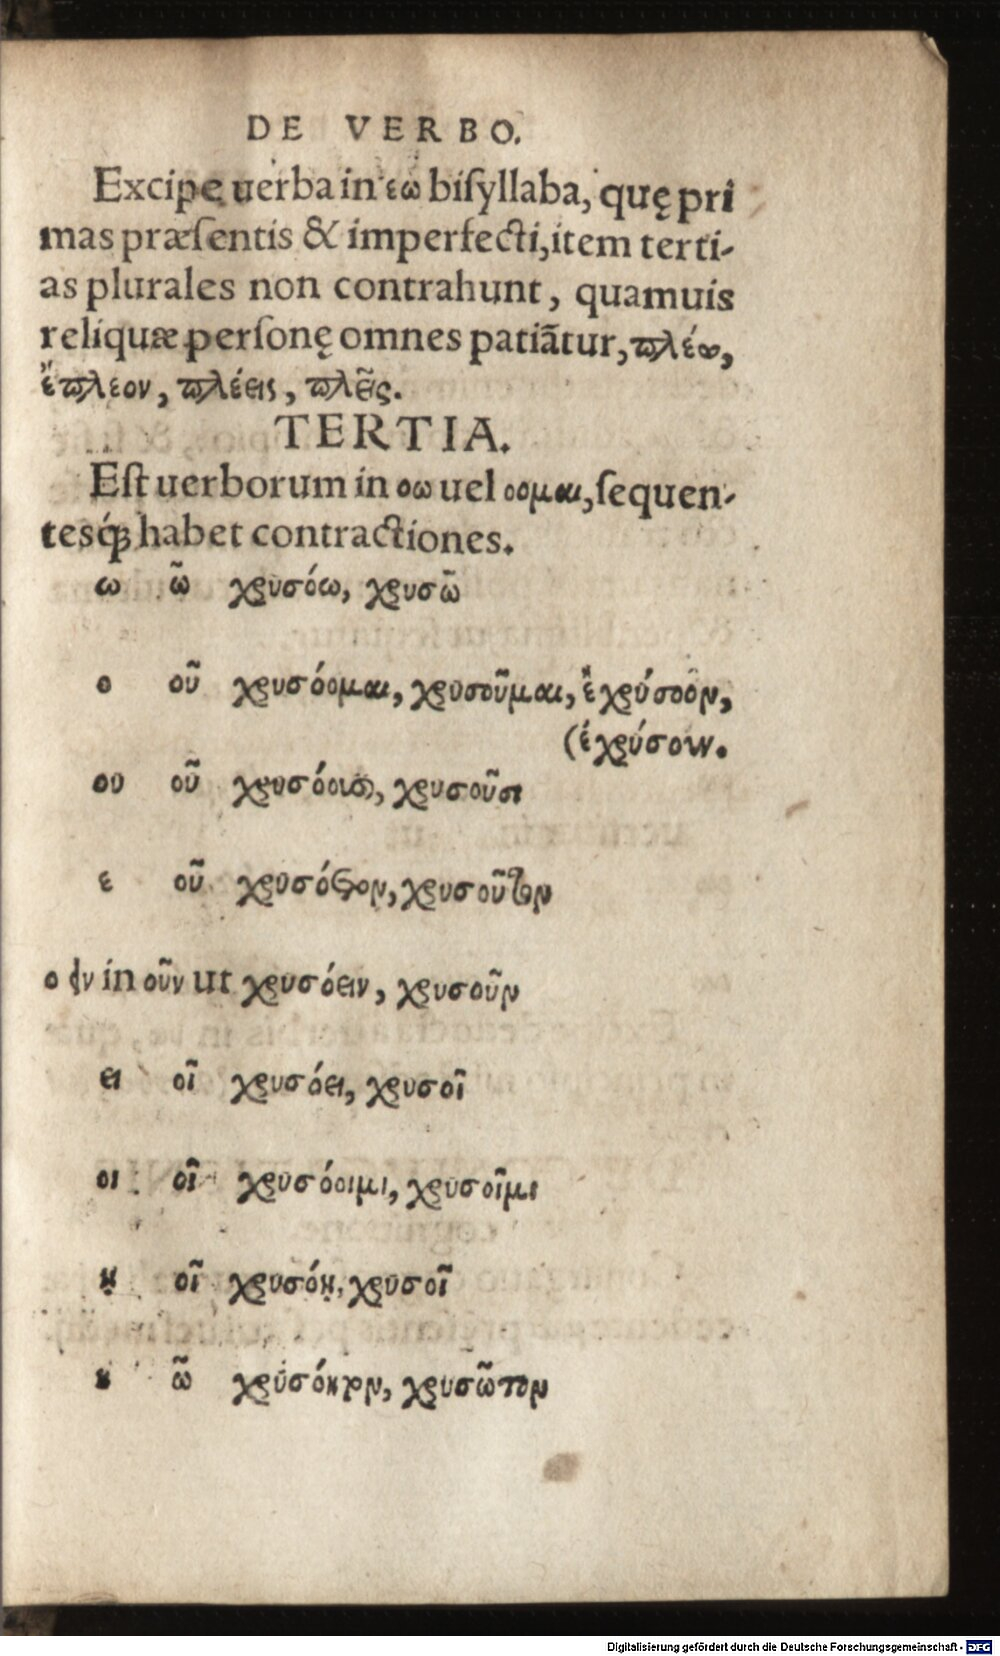 DE VERBO.
Excipe uerba in εω biſyllaba, quę pri
mas præſentis & imperfecti, item terti-
as plurales non contrahunt, quamuis
reliquæ perſonę omnes patiãtur, πλέω,
ἔπλεον, πλέεις, πλεῖς.
TERTIA.
Eſt uerborum in οω uel οομαι, ſequen-
tesq́ꝫ habet contractiones.
ω ῶ χρυσόω, χρυσῶ
ο οῦ χρυσόομαι, χρυσοῦμαι, ἐχρύσοον,
(ἐχρύσουν.
ου οῦ χρυσόουσι, χρυσοῦσι
ε οῦ χρυσόετον, χρυσοῦτον
ο ειν in οῦν ut χρυσόειν, χρυσοῦν
ει οῖ χρυσόει, χρυσοῖ
οι οῖ χρυσόοιμι, χρυσοῖμι
ῃ οῖ χρυσόῃ, χρυσοῖ
η ῶ χρυσόητον, χρυσῶτον
Digitalisierung gefördert durch die Deutsche Forschungsgemeinschaft - DFG